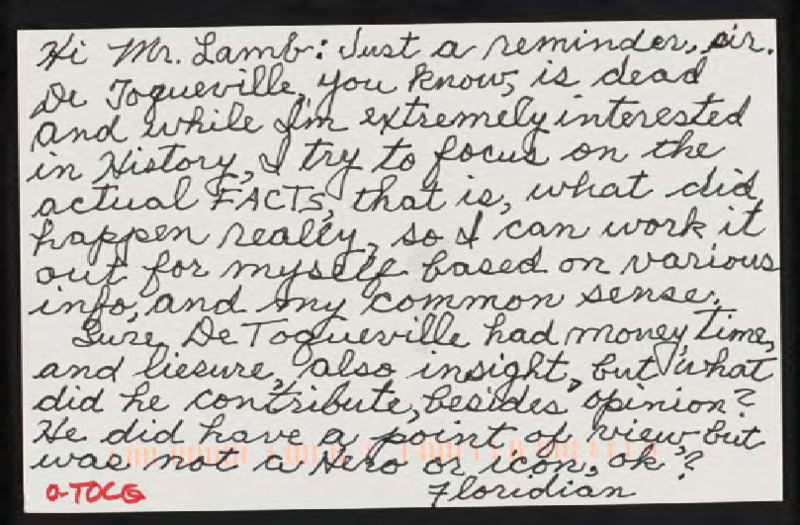 Hi Mr. Lamb: Just a reminder, sir.
De Toqueville, you know, is dead
and while I'm extremely interested
in History, I try to focus on the
actual FACTS, that is, what did
happen really, so I can work it
out for myself based on various
info, and my common sense.
Sure, De Toqueville had money, time,
and liesure, also insight, but what
did he contribute, besides opinion?
He did have a point of view, but
was not a Hero or icon, ok?
Floridian
O-TOCG